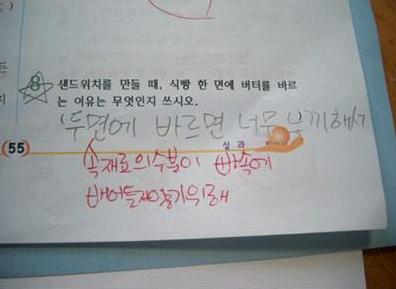 8 샌드위치를 만들 때, 식빵 한 면에 버터를 바르
는 이유는 무엇인지 쓰시오.
두면에 바르면 너무 느끼해서
55
실과
속재료의수분이 빵속에
배어들지않게위해